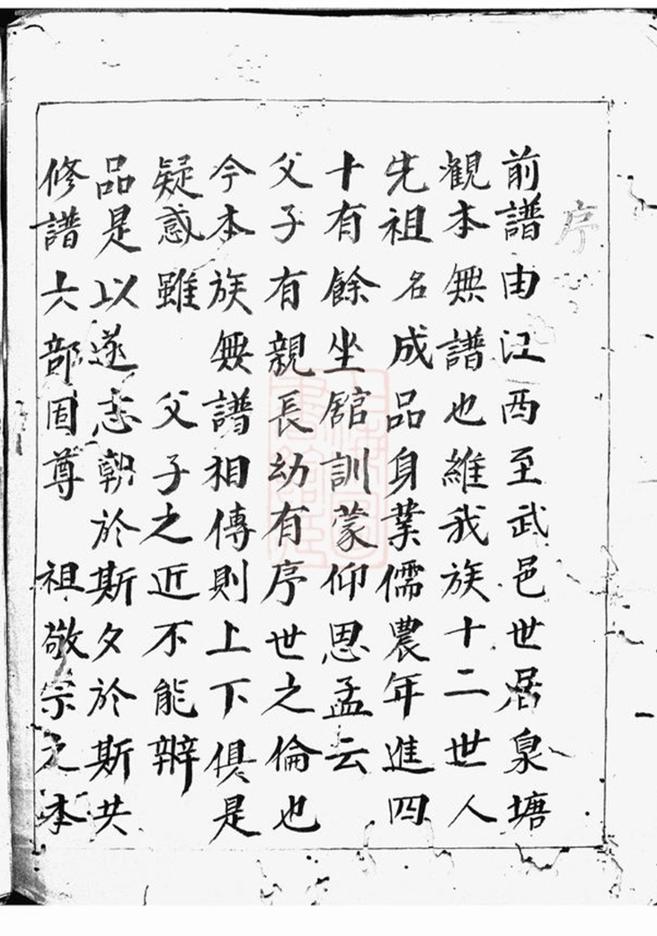 序
前譜由江西至武邑世居泉塘
觀本無譜也維我族十二世人
先祖名成品身業儒農年進四
十有餘坐館訓蒙仰思孟云
父子有親長幼有序世之倫也
今本族無譜相傳則上下俱是
疑惑雖 父子之近不能辦
品是以遂志朝於斯夕於斯共
修譜六部固尊 祖敬宗之本